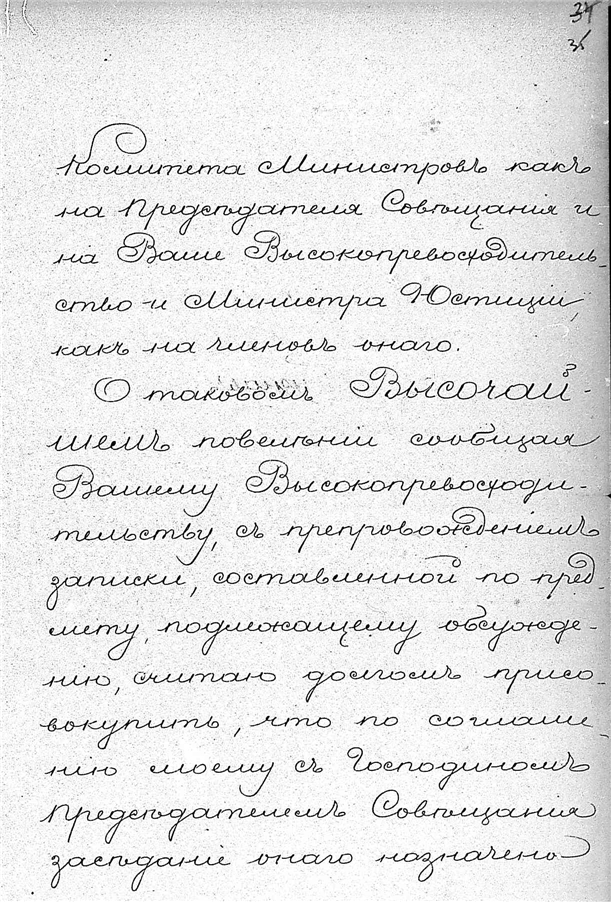 34
35
Комитета Министровъ какъ
на Предсѣдателя Совѣщанія и
на Ваше Высокопревосходитель-
ство и Министра Юстиціи,
какъ на членовъ онаго.
О таковомъ Высочай-
шемъ повелѣніи сообщая
Вашему Высокопревосходи-
тельству, съ препровожденіемъ
записки, составленной по пред-
мету, подлежащему обсужде-
нію, считаю долгомъ присо-
вокупить, что по соглаше-
нію моему съ Господиномъ
Предсѣдателемъ Совѣщанія
засѣданіе онаго назначено